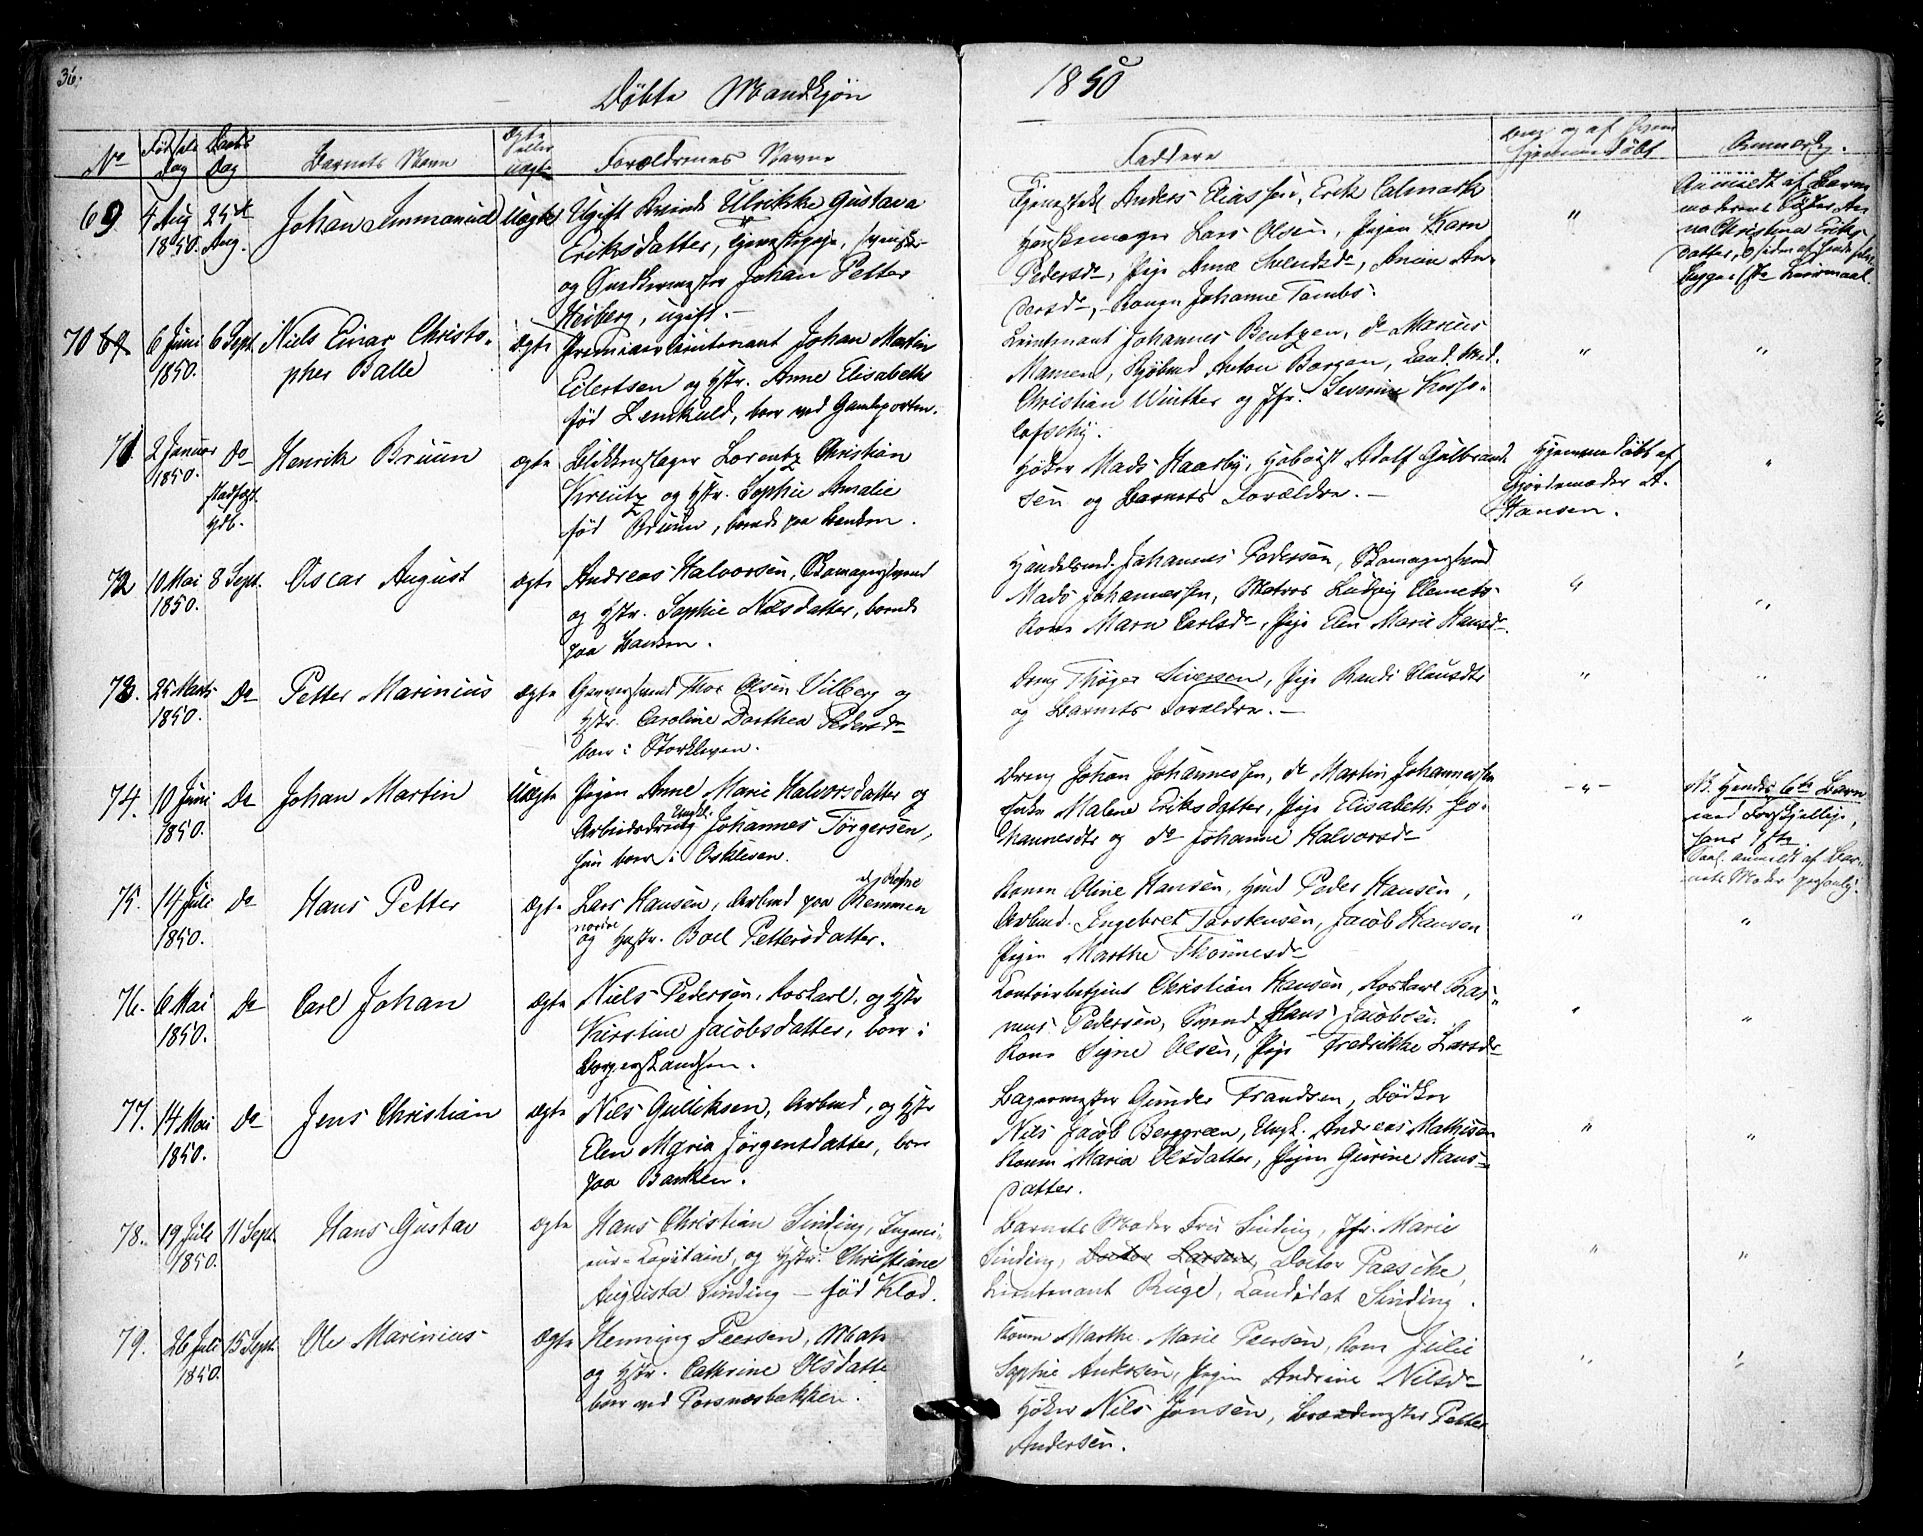 36.
Døbte Mandkjøn
1850
No
Fødsels Dag
Daabs Dag
Barnets Navn
ægte eller uægte
Forældrenes Navne
Faddere
hjemmedøbt
Anmærkg.
69
4 Aug 1850.
25de Aug.
Johan Immanuel
Uægte
Ugift Kvinde Ulrikke Gustava
Eriksdatter, Tjenestepige,
og Snedkermester Johan Petter
Heiberg, ugift.
Anders Eliassen, Erik Calmark
Lars Olsen, Pigen Karn
Pedersdr, Pige Anne Svendsdr, Anin An-
dersdr, Konen Johanne Tambs.
"
Anmeldt af Barn
moderens Søster An-
na Christina Eriks
datter,
70 69
6 Juni 1850.
6 Sept
Niels Einar Christo-
pher Balle
ægte
Premierlieutenant Johan Martin
Eilertsen og Hstr. Anne Elisabeth
fød Lemkuld, boer ved Gamleporten.
Lieutenant Johannes Bentzen, do Marius
Mamen, Kjøbmd Anton Borgen, Cand. Med.
Christian Winther og Jfr. Severine
"
"
71
2 Januar 1850.
Do
stadfæst. Hjdb.
Henrik Bruun
ægte
Blikkenslager Lorentz Christian
Kreutz og Hstr. Sophie Amalie
fød Bruun, boende paa Banken.
Høker Mads Haarby, Hoboist Adolf Gulbrand-
sen og Barnets Forældre. -
Hjemmedøbt af
Gjordemoder A.
Hansen.
"
72
10 Mai 1850.
8 Sept.
Oscar August
ægte
Andreas Halvorsen, Skomagersvend
og Hstr. Sophie Nilsdatter, boende
paa Banken.
Handelsmd. Johannes Pedersen, Skomagersvend
Mads Johannessen, Matros Ludvig Clemets-
Kone Marn Carlsdr, Pige Elen Marie Hansdr.
"
"
73.
25 Marts 1850.
Do
Petter Marinius
ægte
Garversvend Thor Olsen Vilberg og
Hstr. Caroline Dorthea Pedersdr
boer i Storkleven.
Dreng Thøger Siversen, Pige Randi Clausdtr
og Barnets Forældre. -
"
"
74.
10 Juni 1850.
Do
Johan Martin
Uægte
Pigen Anne Marie Halvorsdatter og
Ungk.
Arbeidsdreng Johannes Torgersen,
hun boer i Oskleven.
Dreng Johan Johannessen, do Martin Johannessen
Enke Malene Eriksdatter, Pige Elisabeth Jo-
hannesdtr og do Johanne Halvorsdr
- " -
NB. Hendes 6te Barn
med Forskjellige,
hans 1ste.
anmeldt af Bar-
nets Moder personlig.
75.
14 Juli 1850.
Do
Hans Petter
Ægte
Lars Hansen, Arbmd paa Remmen
nordre
og Hustr. Boel Pettersdatter.
Konen Oline Hansen, Hmd Peder Hansen,
Arbmd. Ingebret Torstensen, Jacob Hansen
Pigen Marthe Thønnesdr
"
"
76.
6 Mai 1850.
Do
Carl Johan
ægte
Niels Pedersen, Roskarl, og Hstr
Kirstine Jacobsdatter, boer i
Borgerskandsen.
Contoirbetjent Christian Hansen, Roskarl Ras-
mus Pedersen, Svend Hans Jacobsen
Kone Signe Olsen, Pige Fredrikke Larsdr
"
"
77.
14 Mai 1850.
Do
Jens Christian
ægte
Nils Gulliksen, Arbmd, og Hstr
Elen Maria Jørgensdatter, boer
paa Banken.
Bagermester Gunder Frandsen, Bødker
Nils Jacob Berggreen, Ungk. Andreas Mathisen
Konen Maria Olsdatter, Pigen Gurine Hans-
datter.
"
"
78.
19 Juli 1850.
11 Sept.
Hans Gustav
ægte
Hans Christian Sinding, Ingeni-
eur-Capitain, og Hstr. Christiane
Augusta Sinding - fød Klod.
Barnets Moder Fru Sinding, Jfr. Marie
Sinding, Doctor Larsen, Doctor Paasche,
Lieutenant Ruge, Candidat Sinding.
"
"
79.
26 Juli 1850.
15 Sept.
Ole Marinius
Ægte
Henning Peersen, Mat
og Hstr. Cathrine Olsdatte
boer ved Porsnæsbakken.
Konen Marthe Marie Peersen, Kone Julie
Sophie Ankersen, Pigen Andrine Nilsdr
Høker Nils Jonsen, Brandmester Petter
Andersen.
"
"